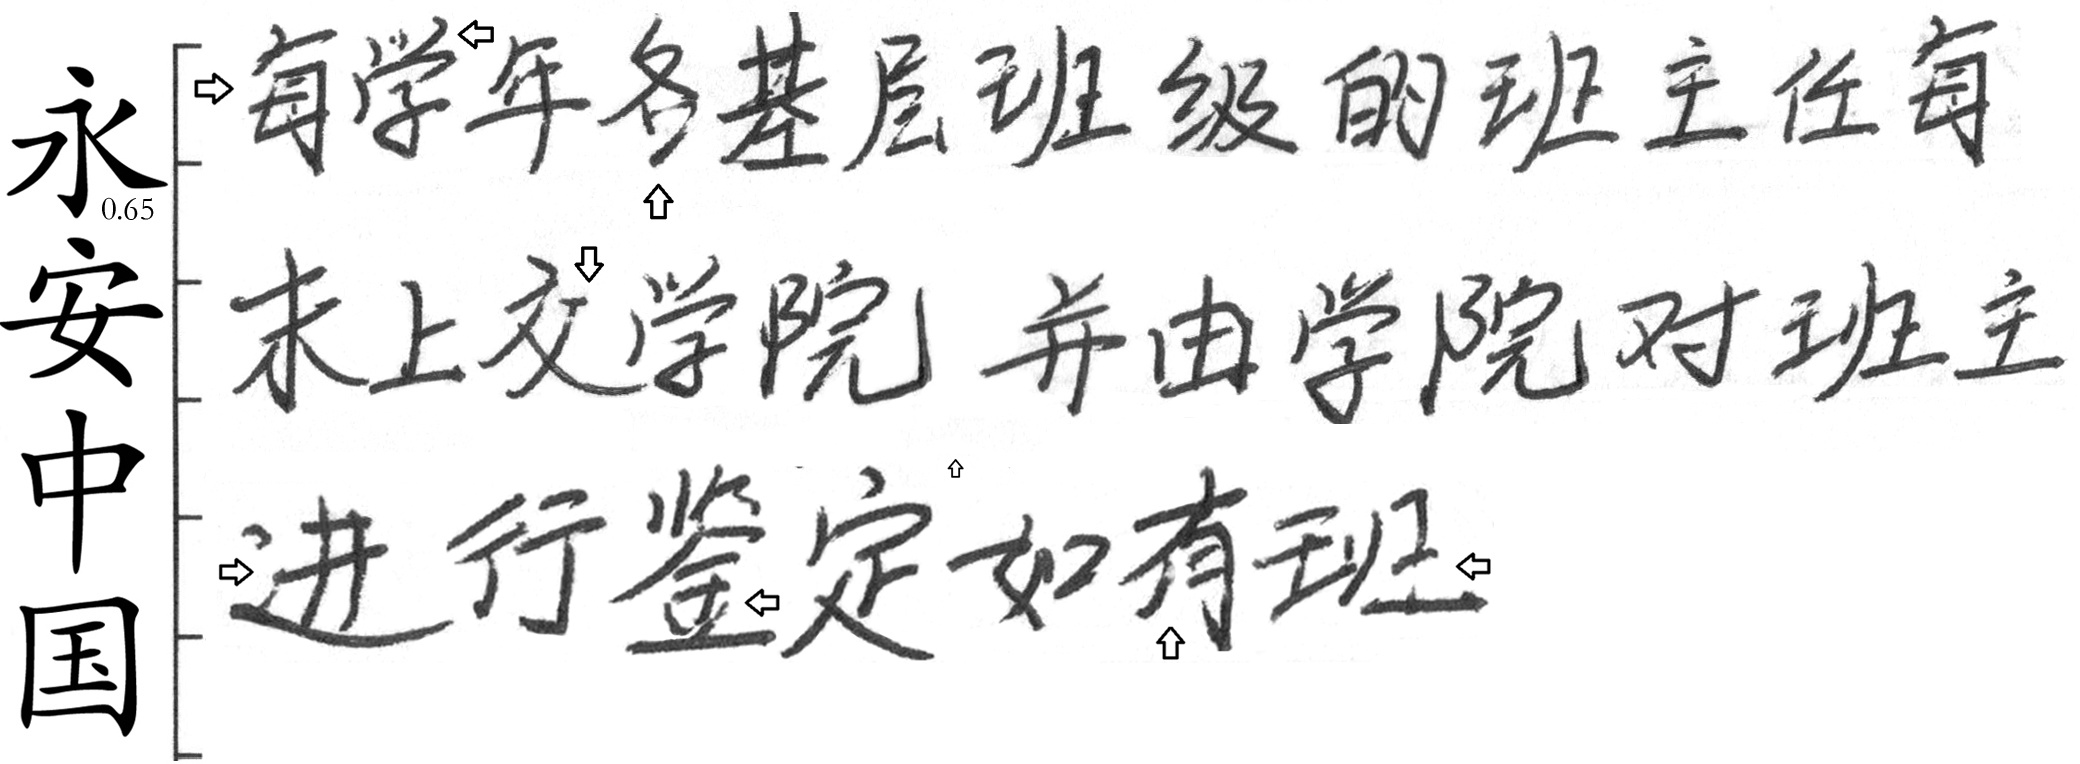 永安中国
0.65
每学年各基层班级的班主任每
末上交学院 并由学院对班主
进行鉴定如有班